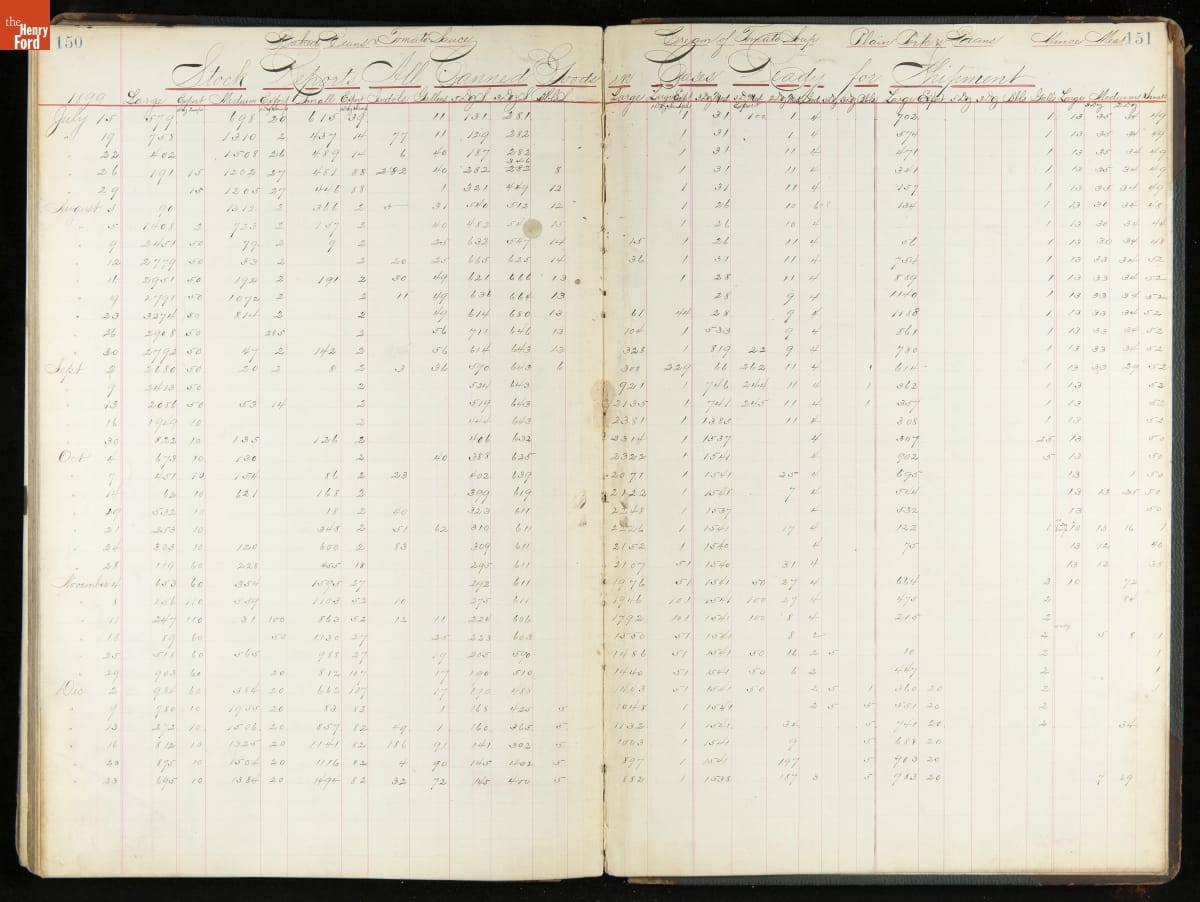 the Henry Ford
150
Baked Beans & Tomato Sauce
Cream of Tomato Soup Plain Pork & Beans Mince Meat 151
Stock Reports All Canned Goods in Cases Ready for Shipment
1899 Large Export Medium Export Small Export 3 Dz 3 Dz Large Large Large Export Large Mediums
July 15 579 698 20 615 39 11 131 281 1 31 100 1 4 702 1 13 35 34 49
" 19 758 1310 2 437 14 77 11 129 282 1 31 1 4 574 1 13 35 34 49
" 22 402 1508 26 489 14 6 40 187 282 1 31 11 4 471 1 13 35 34 49
346
" 26 191 15 1202 27 481 88 282 40 282 282 8 1 31 11 4 341 1 13 35 34 49
" 29 15 1205 27 446 88 1 321 449 12 1 31 11 4 157 1 13 35 34 49
August 3 90 1312 2 366 2 5 31 540 512 12 1 26 10 134 1 13 30 34 48
" 5 1408 2 723 2 157 2 40 482 15 1 26 10 4 1 13 30 34
" 9 2451 50 79 2 9 2 25 632 547 14 15 1 26 11 4 56 1 13 30 34 48
" 12 2779 50 33 2 2 20 25 665 625 14 36 1 31 11 4 754 1 13 33 34 52
" 16 2951 50 192 2 191 2 30 49 621 666 13 1 28 11 4 889 1 13 33 34 52
" 9 2791 50 1072 2 2 11 49 636 664 13 28 9 4 1140 1 13 33 34 52
" 23 3274 50 814 2 2 49 614 680 13 61 44 28 9 4 1188 1 13 33 34 52
" 26 2908 50 285 2 56 646 13 104 1 533 9 4 861 1 13 33 34 52
" 30 2792 50 47 2 142 2 56 614 643 13 328 1 819 22 9 4 780 1 13 33 34 52
Sept 2 2680 50 20 2 8 2 3 36 590 643 6 308 229 66 262 11 4 614 1 13 33 29 52
" 9 2413 50 2 534 643 921 1 746 244 11 4 1 362 1 13 52
" 13 2056 50 53 14 2 519 643 2135 1 741 245 11 4 1 357 1 13 52
" 16 1949 10 2 444 643 2381 1 1385 11 4 308 1 13 52
" 30 822 10 135 126 2 406 632 2314 1 1537 4 307 25 13 50
Oct 4 673 10 130 2 40 388 625 2322 1 1541 4 902 5 13 50
" 7 451 10 154 86 2 23 402 639 2071 1 1541 25 4 695 13 1 50
" 14 62 10 621 168 2 399 619 2122 1 1541 7 4 544 13 13 25 50
" 19 532 10 18 2 40 323 611 2248 1 1537 4 532 13 50
" 21 253 10 348 2 51 62 310 611 2226 1 1541 17 4 122 1 10 13 16 1
" 24 303 10 120 600 2 83 309 611 2152 1 1540 4 75 13 12 40
" 28 119 60 228 455 18 295 611 2107 51 1540 31 4 13 12 35
November 4 653 60 354 1595 27 292 611 1976 51 1541 50 27 4 664 2 10 72
" 8 156 110 559 1103 52 10 275 611 1946 101 1541 100 27 4 475 2 84
" 11 247 110 31 100 863 52 12 11 224 606 1792 101 1541 100 8 4 215 2
" 18 89 60 50 1130 27 25 223 603 1550 51 1541 8 2 2 5 8 1
" 25 518 60 565 988 27 19 205 590 1486 51 1541 50 16 2 5 10 2 1
" 29 903 60 20 812 107 17 190 510 1440 51 1541 50 6 2 447 2 1
Dec 2 984 60 384 20 662 107 17 190 488 1443 51 1541 50 2 5 1 360 20 2 1
" 9 780 10 1955 20 83 82 1 168 425 5 1048 1 1541 2 5 5 551 20 2
" 13 272 10 1506 20 857 82 49 1 160 365 5 1132 1 1528 32 5 741 20 2 34
" 16 812 10 1325 20 1141 82 186 91 141 302 5 1003 1 1541 9 5 688 20
" 20 875 10 1504 20 1116 82 4 90 145 402 5 897 1 1541 197 5 903 20
" 23 695 10 1384 20 1494 82 32 72 145 400 5 882 1 1538 187 3 5 983 20 7 69